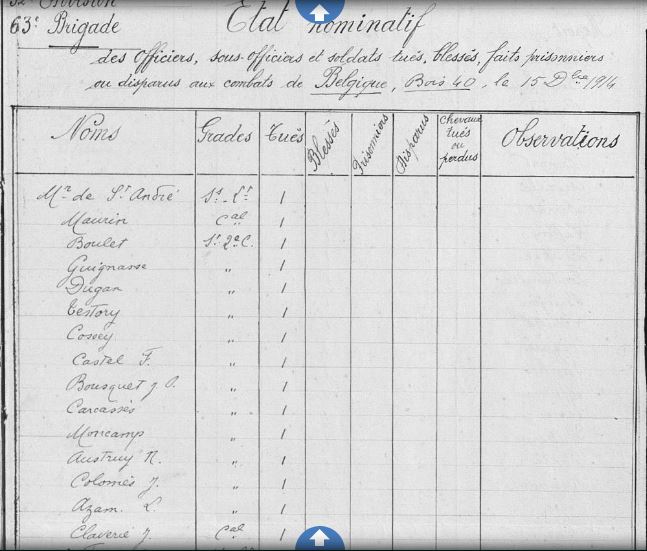 32e Division
63e Brigade
Etat nominatif
des Officiers, sous-officiers et soldats tués, blessés, faits prisonniers
ou disparus aux combats de Belgique, Bois 40, le 15 Dbre 1914
Noms Grades Tués Blessés Prisonniers Disparus Chevaux tués ou perdus Observations
Mr de St André Ss-Lt 1
Maurin Cal 1
Boulet St 2e C. 1
Guignasse " 1
Dugan " 1
Testory " 1
Cossey " 1
Castel F. " 1
Bousquet J. " 1
Carcassès " 1
Moncamp " 1
Austruy N. " 1
Colomès J. " 1
Azam. L. " 1
Claverie J. Cal 1